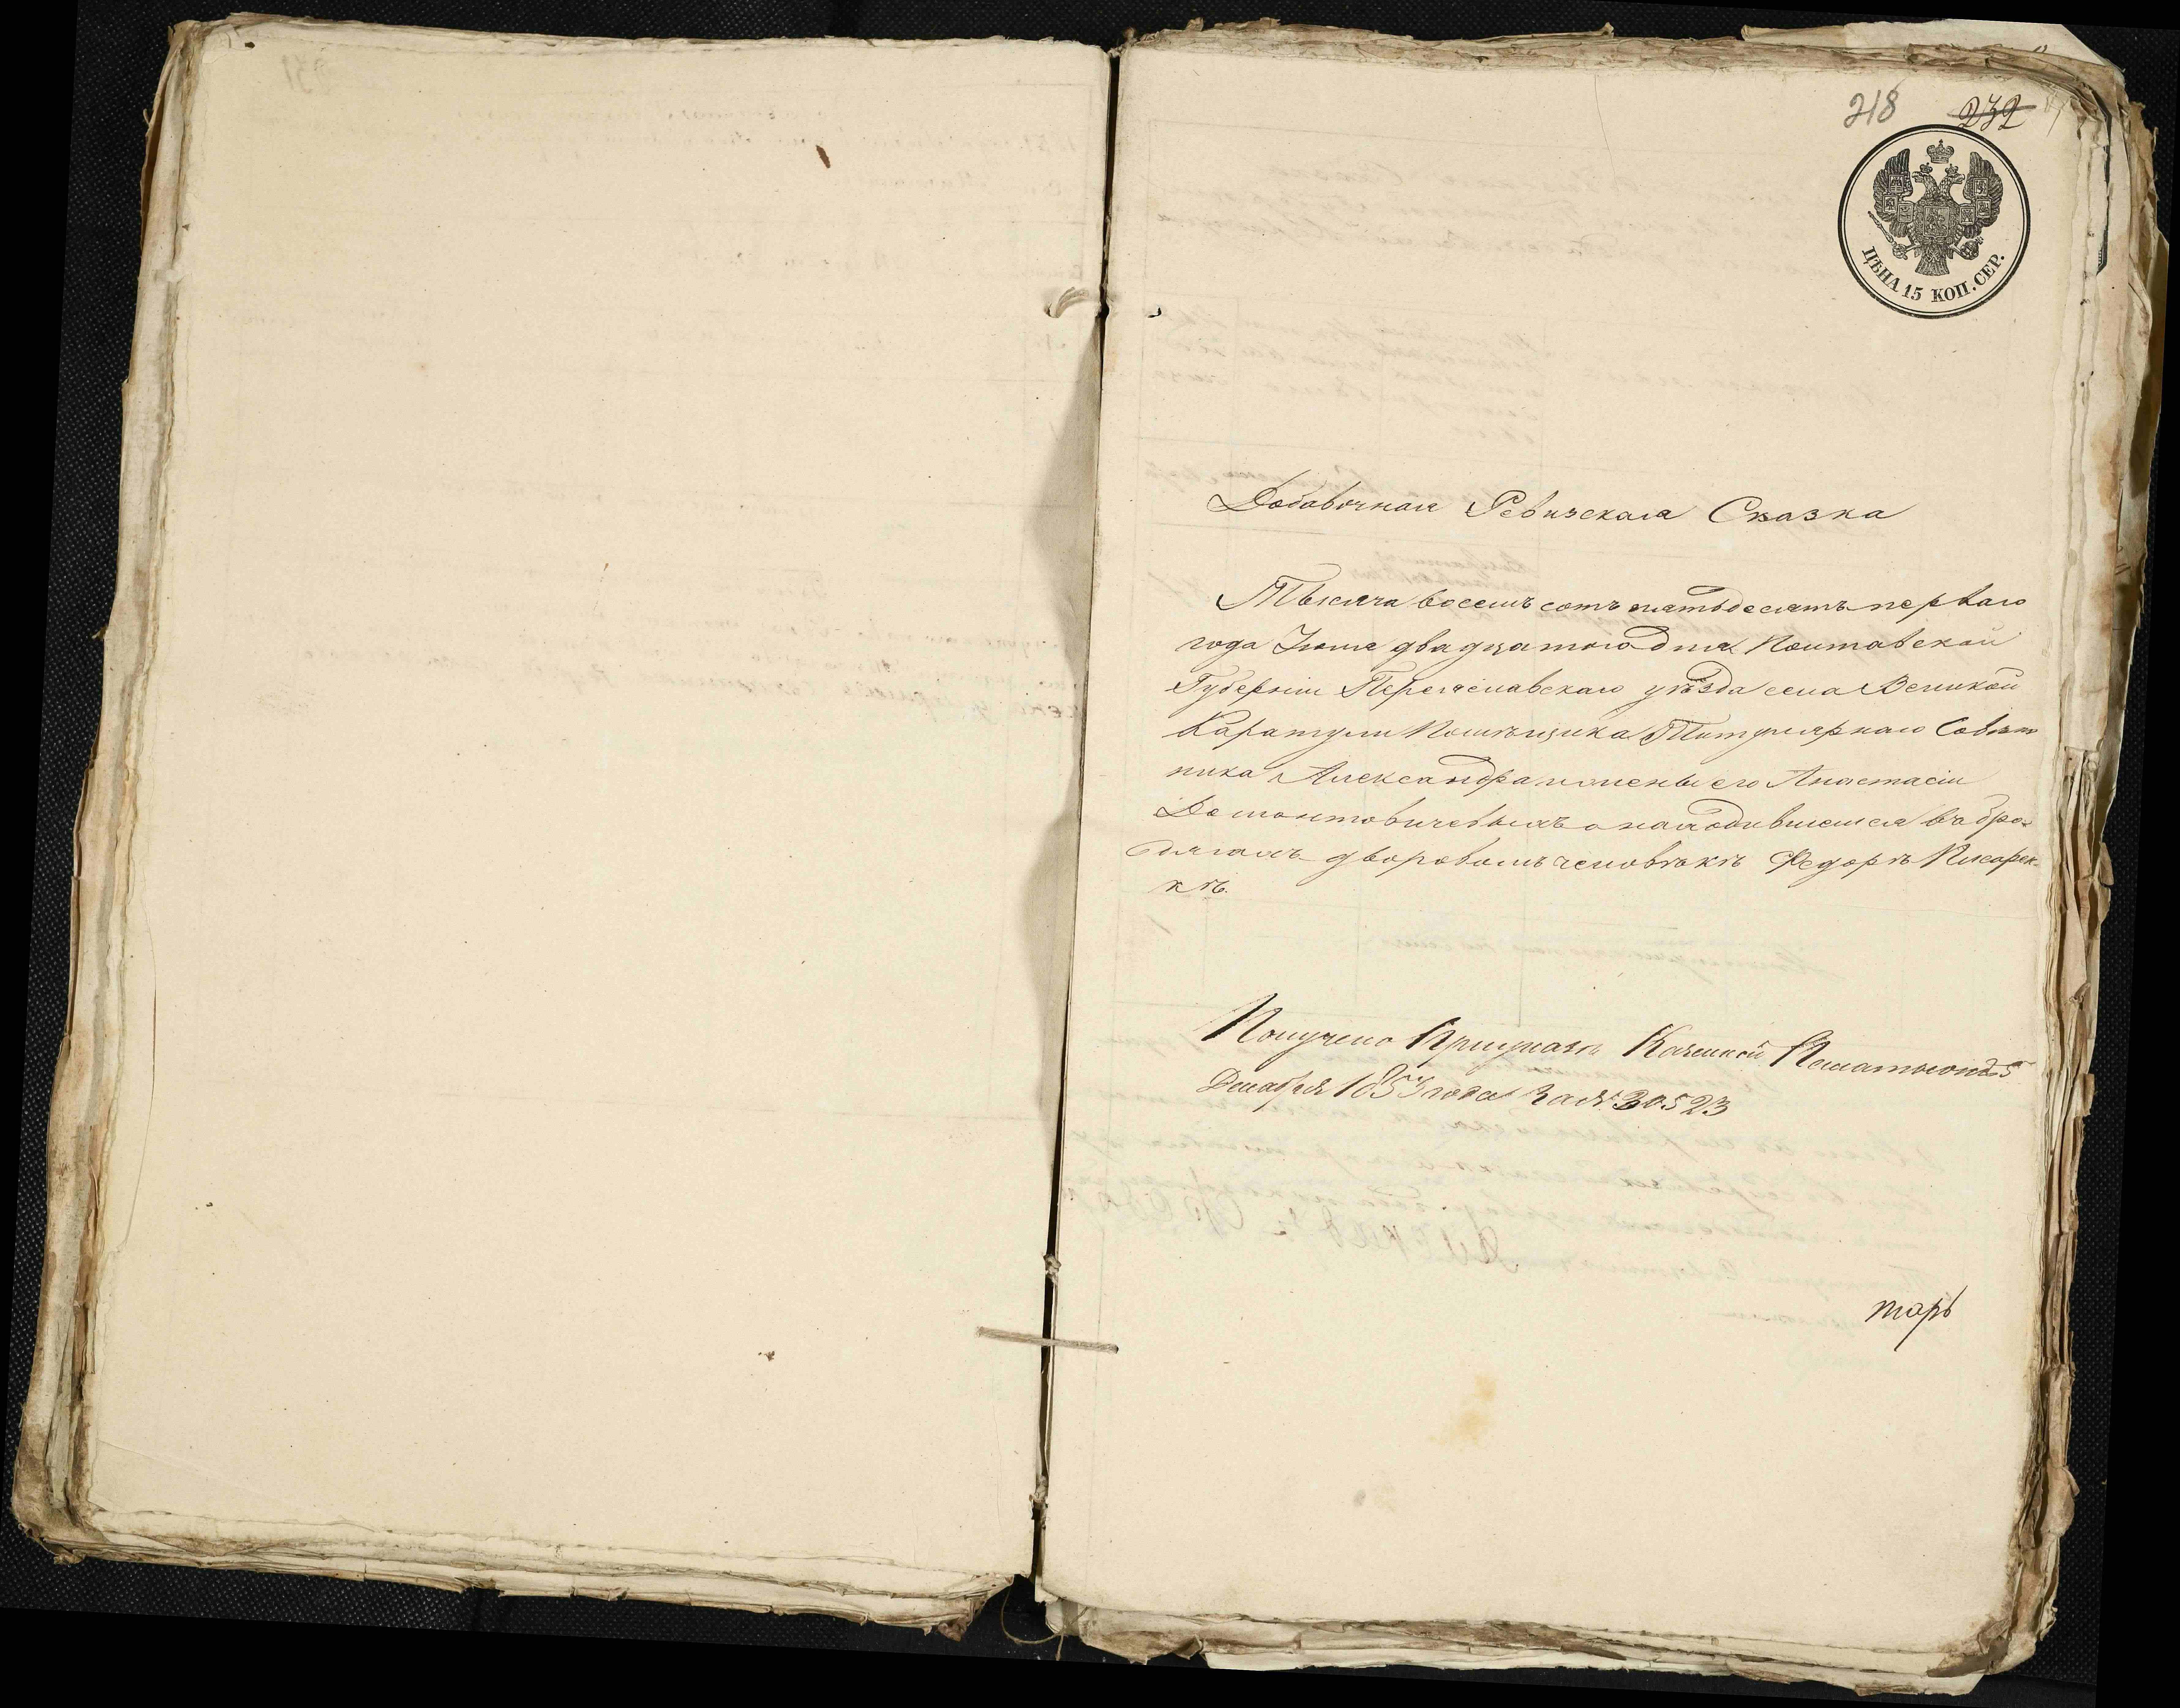 218 232
ЦѢНА 15 КОП. СЕР.
Добавочная Ревизская Сказка
Тысяча восемъ сотъ пятьдесятъ перваго
года Іюня двадцатого дня Полтавской
Губерніи Переяславскаго уѣзда села Великой
Каратули Помѣщика Титулярнаго Совѣт
ника Александра и жены его Анастасіи
Демонтовичевыхъ о находившемся въ бро-
дягахъ дворовомъ человѣкѣ Федорѣ Писарен-
кѣ.
Получено Казенной 5
Декабря 1853 года За № 30523
тарь